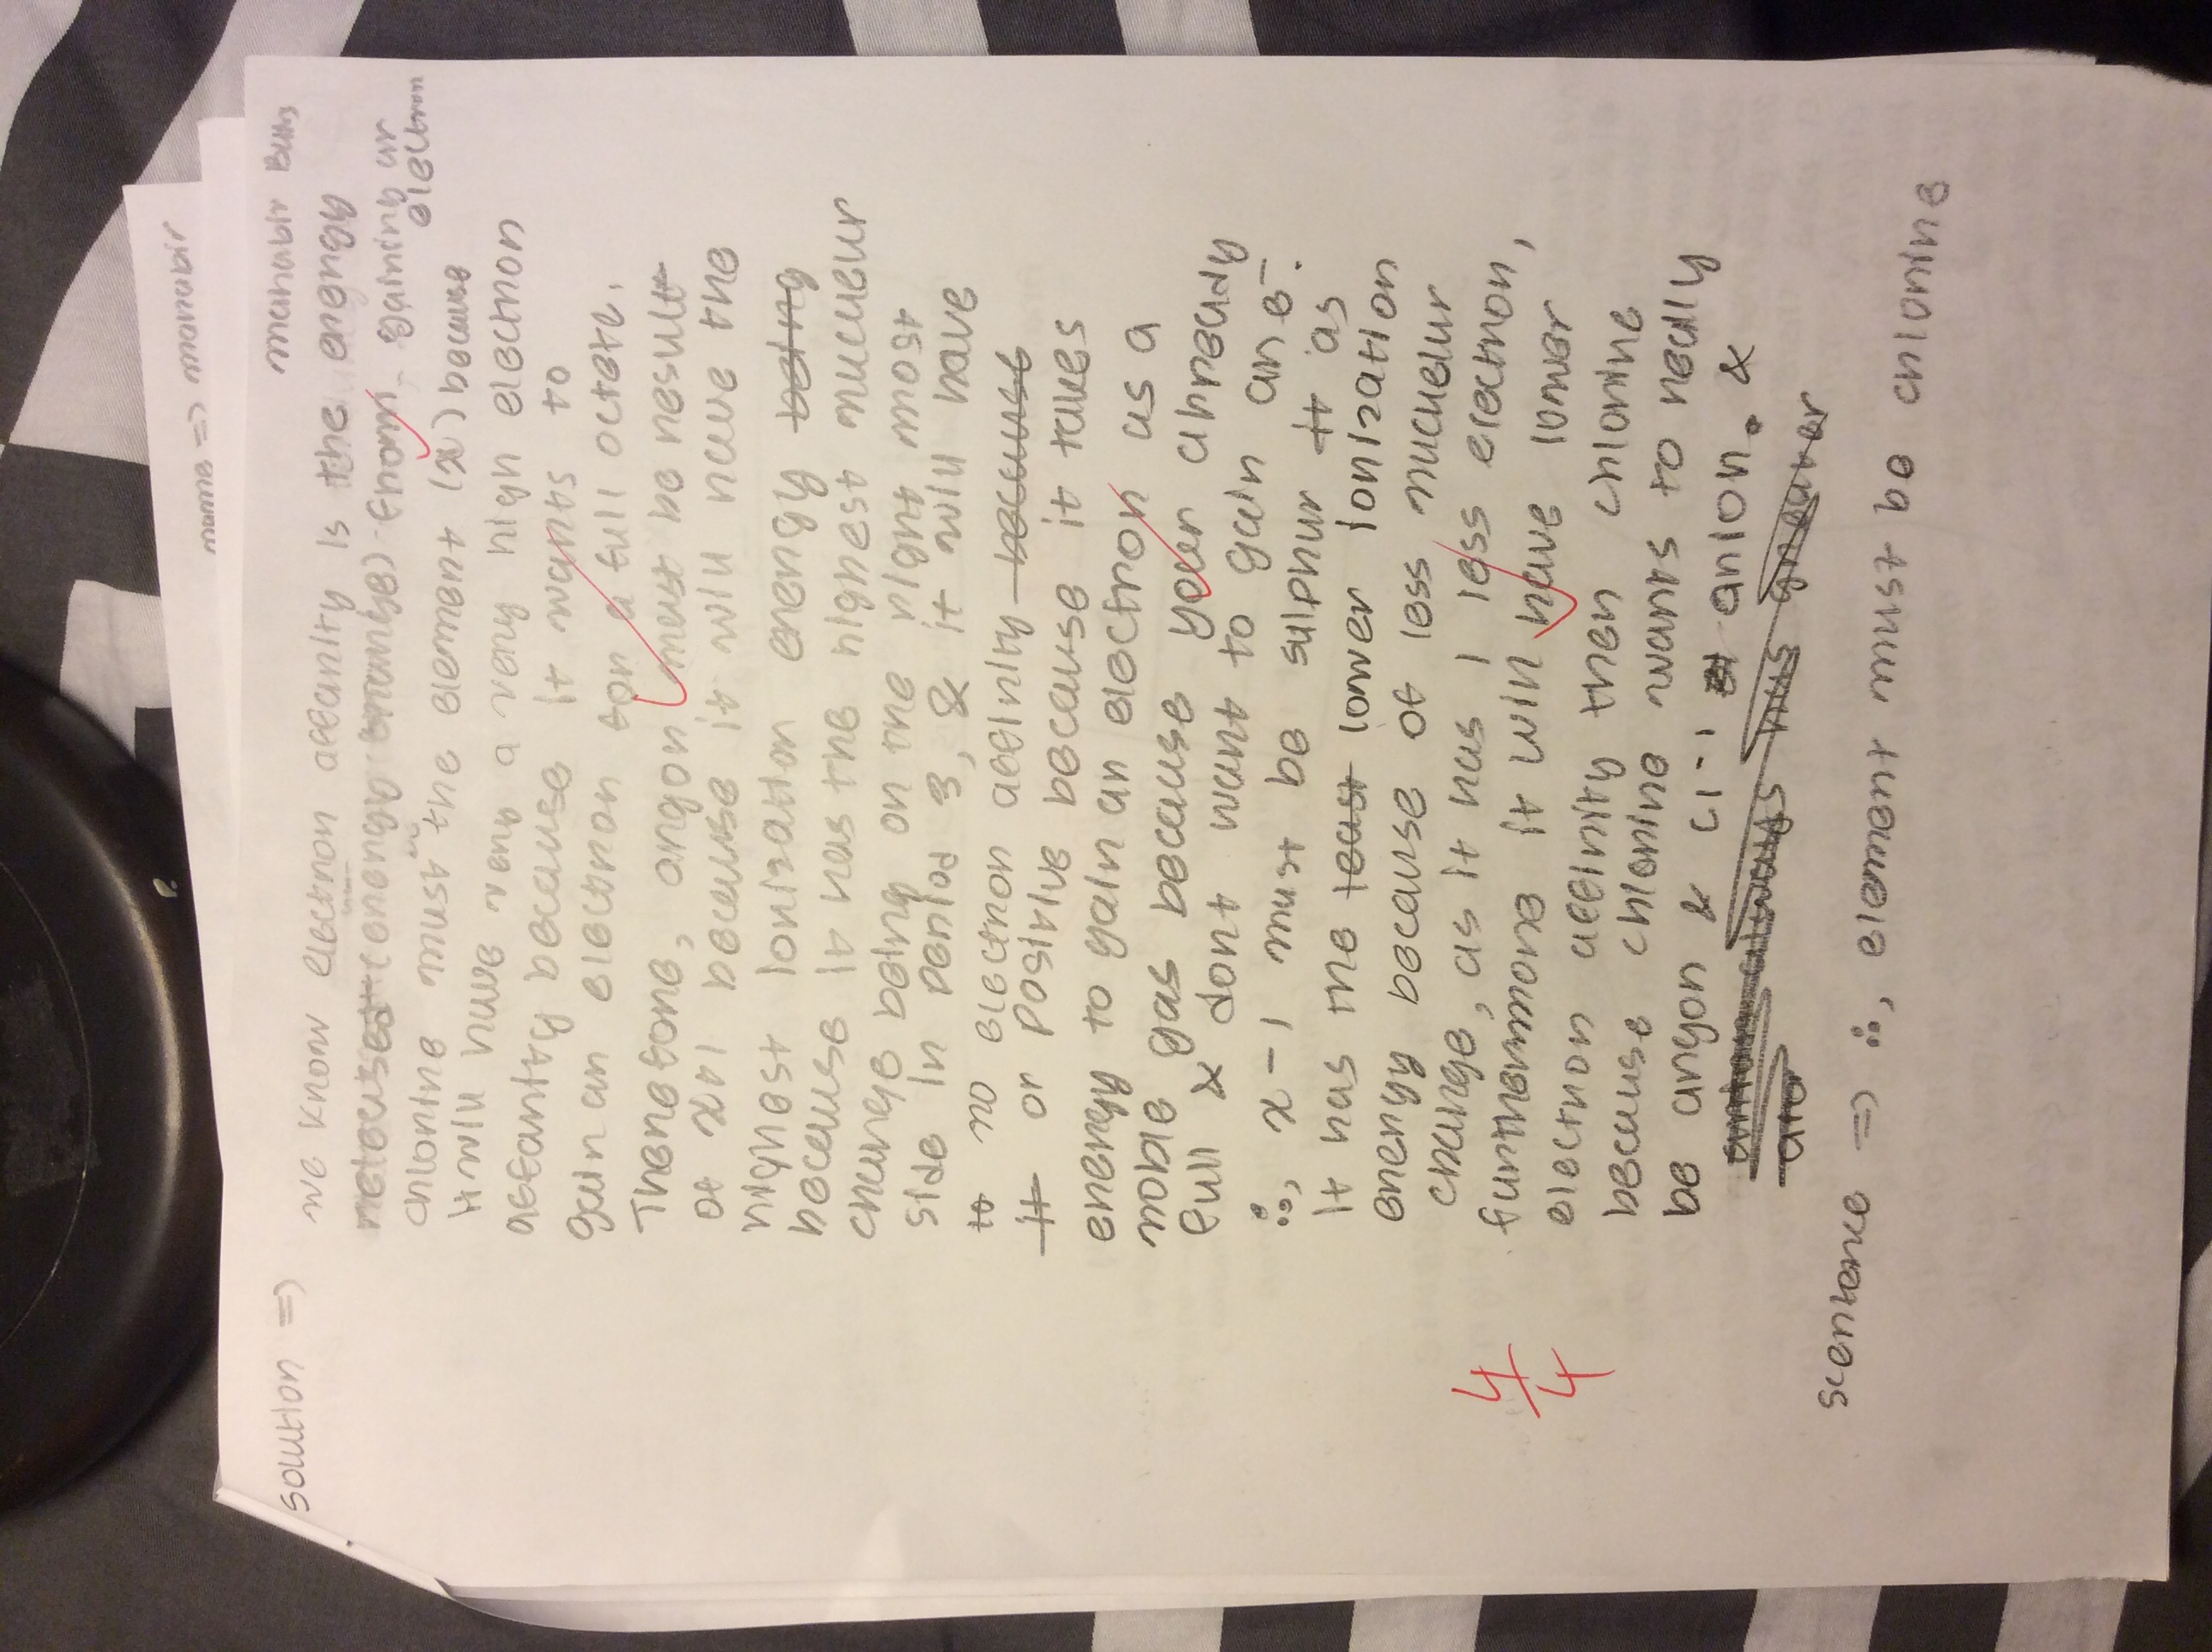 name => manabir
manabir
solution => we know electron affanity is the energy
(energy change) from gaining an
electron
chlorine must be the element (x) because
it will have very a very high electron
affanity because it wants to
gain an electron for a full octete.
Therefore, argon must be result
of x+1 because it will have the
highest ionization energy being
because it has the highest nuclear
charge being on the right most
side in period 3, & it will have
to no electron affinity because
it or positive because it takes
energy to gain an electron as a
noble gas because your already
full & dont want to gain an e-.
∴, x-1 must be sulphur it as
it has the least lower ionization
energy because of less nuclear
charge, as it has 1 less electron,
furthermore it will have lower
electron affinity then chlorine
because chlorine wants to really
be argon & Cl-1 anion. &
always has greater
sentence => ∴, element must be chlorine
4/4